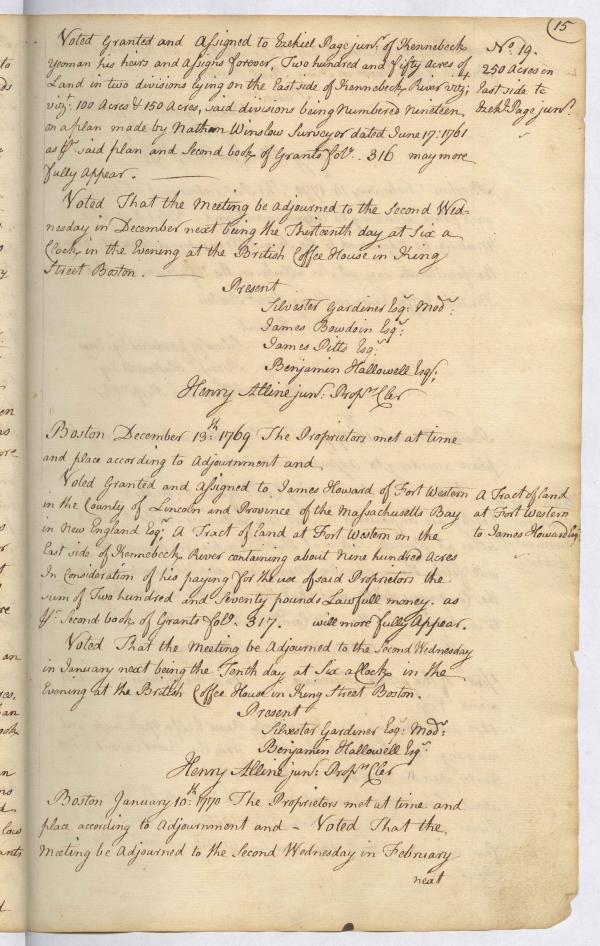 15
Voted Granted and Assigned to Ezekiel Page junr. of Kennebeck
Yeoman his heirs and Assigns forever, Two hundred and fifty Acres of
Land in two divisions lying on the East side of Kennebeck River viz;
vizt. 100 Acres & 150 Acres, said divisions being Numbered Nineteen
on a plan made by Nathan Winslow Surveyor dated June 17: 1761
as pr. said plan and Second book of Grants folo. 316 may more
fully Appear.
No. 19.
250 Acres on
East side to
Ezekl. Page junr.
Voted That the Meeting be adjourned to the Second Wed-
nesday in December next being the Thirteenth day at Six a
Clock in the Evening at the British Coffee House in King
Street Boston.
Present
Silvester Gardiner Esqr: Modr:
James Bowdoin Esqr:
James Pitts Esqr:
Benjamin Hallowell Esqr.
Henry Alline junr: Proprs Cler
Boston December 13th: 1769 The Proprietors met at time
and place according to Adjournment and
Voted Granted and Assigned to James Howard of Fort Western
in the County of Lincoln and Province of the Massachusetts Bay
in New England Esqr. A Tract of Land at Fort Western on the
East side of Kennebeck River containing about Nine hundred Acres
In Consideration of his paying for the use of said Proprietors the
sum of Two hundred and Seventy pounds Lawfull money. as
pr. Second book of Grants folo. 317. will more fully Appear.
A Tract of land
at Fort Western
to James Howard Esqr
Voted That the Meeting be Adjourned to the Second Wednesday
in January next being the Tenth day at Six a Clock in the
Evening at the British Coffee House in King Street Boston.
Present
Silvester Gardiner Esqr: Modr:
Benjamin Hallowell Esqr.
Henry Alline junr: Proprs Cler
Boston January 10th: 1770 The Proprietors met at time and
place according to Adjournment and - Voted That the
Meeting be Adjourned to the Second Wednesday in February
next